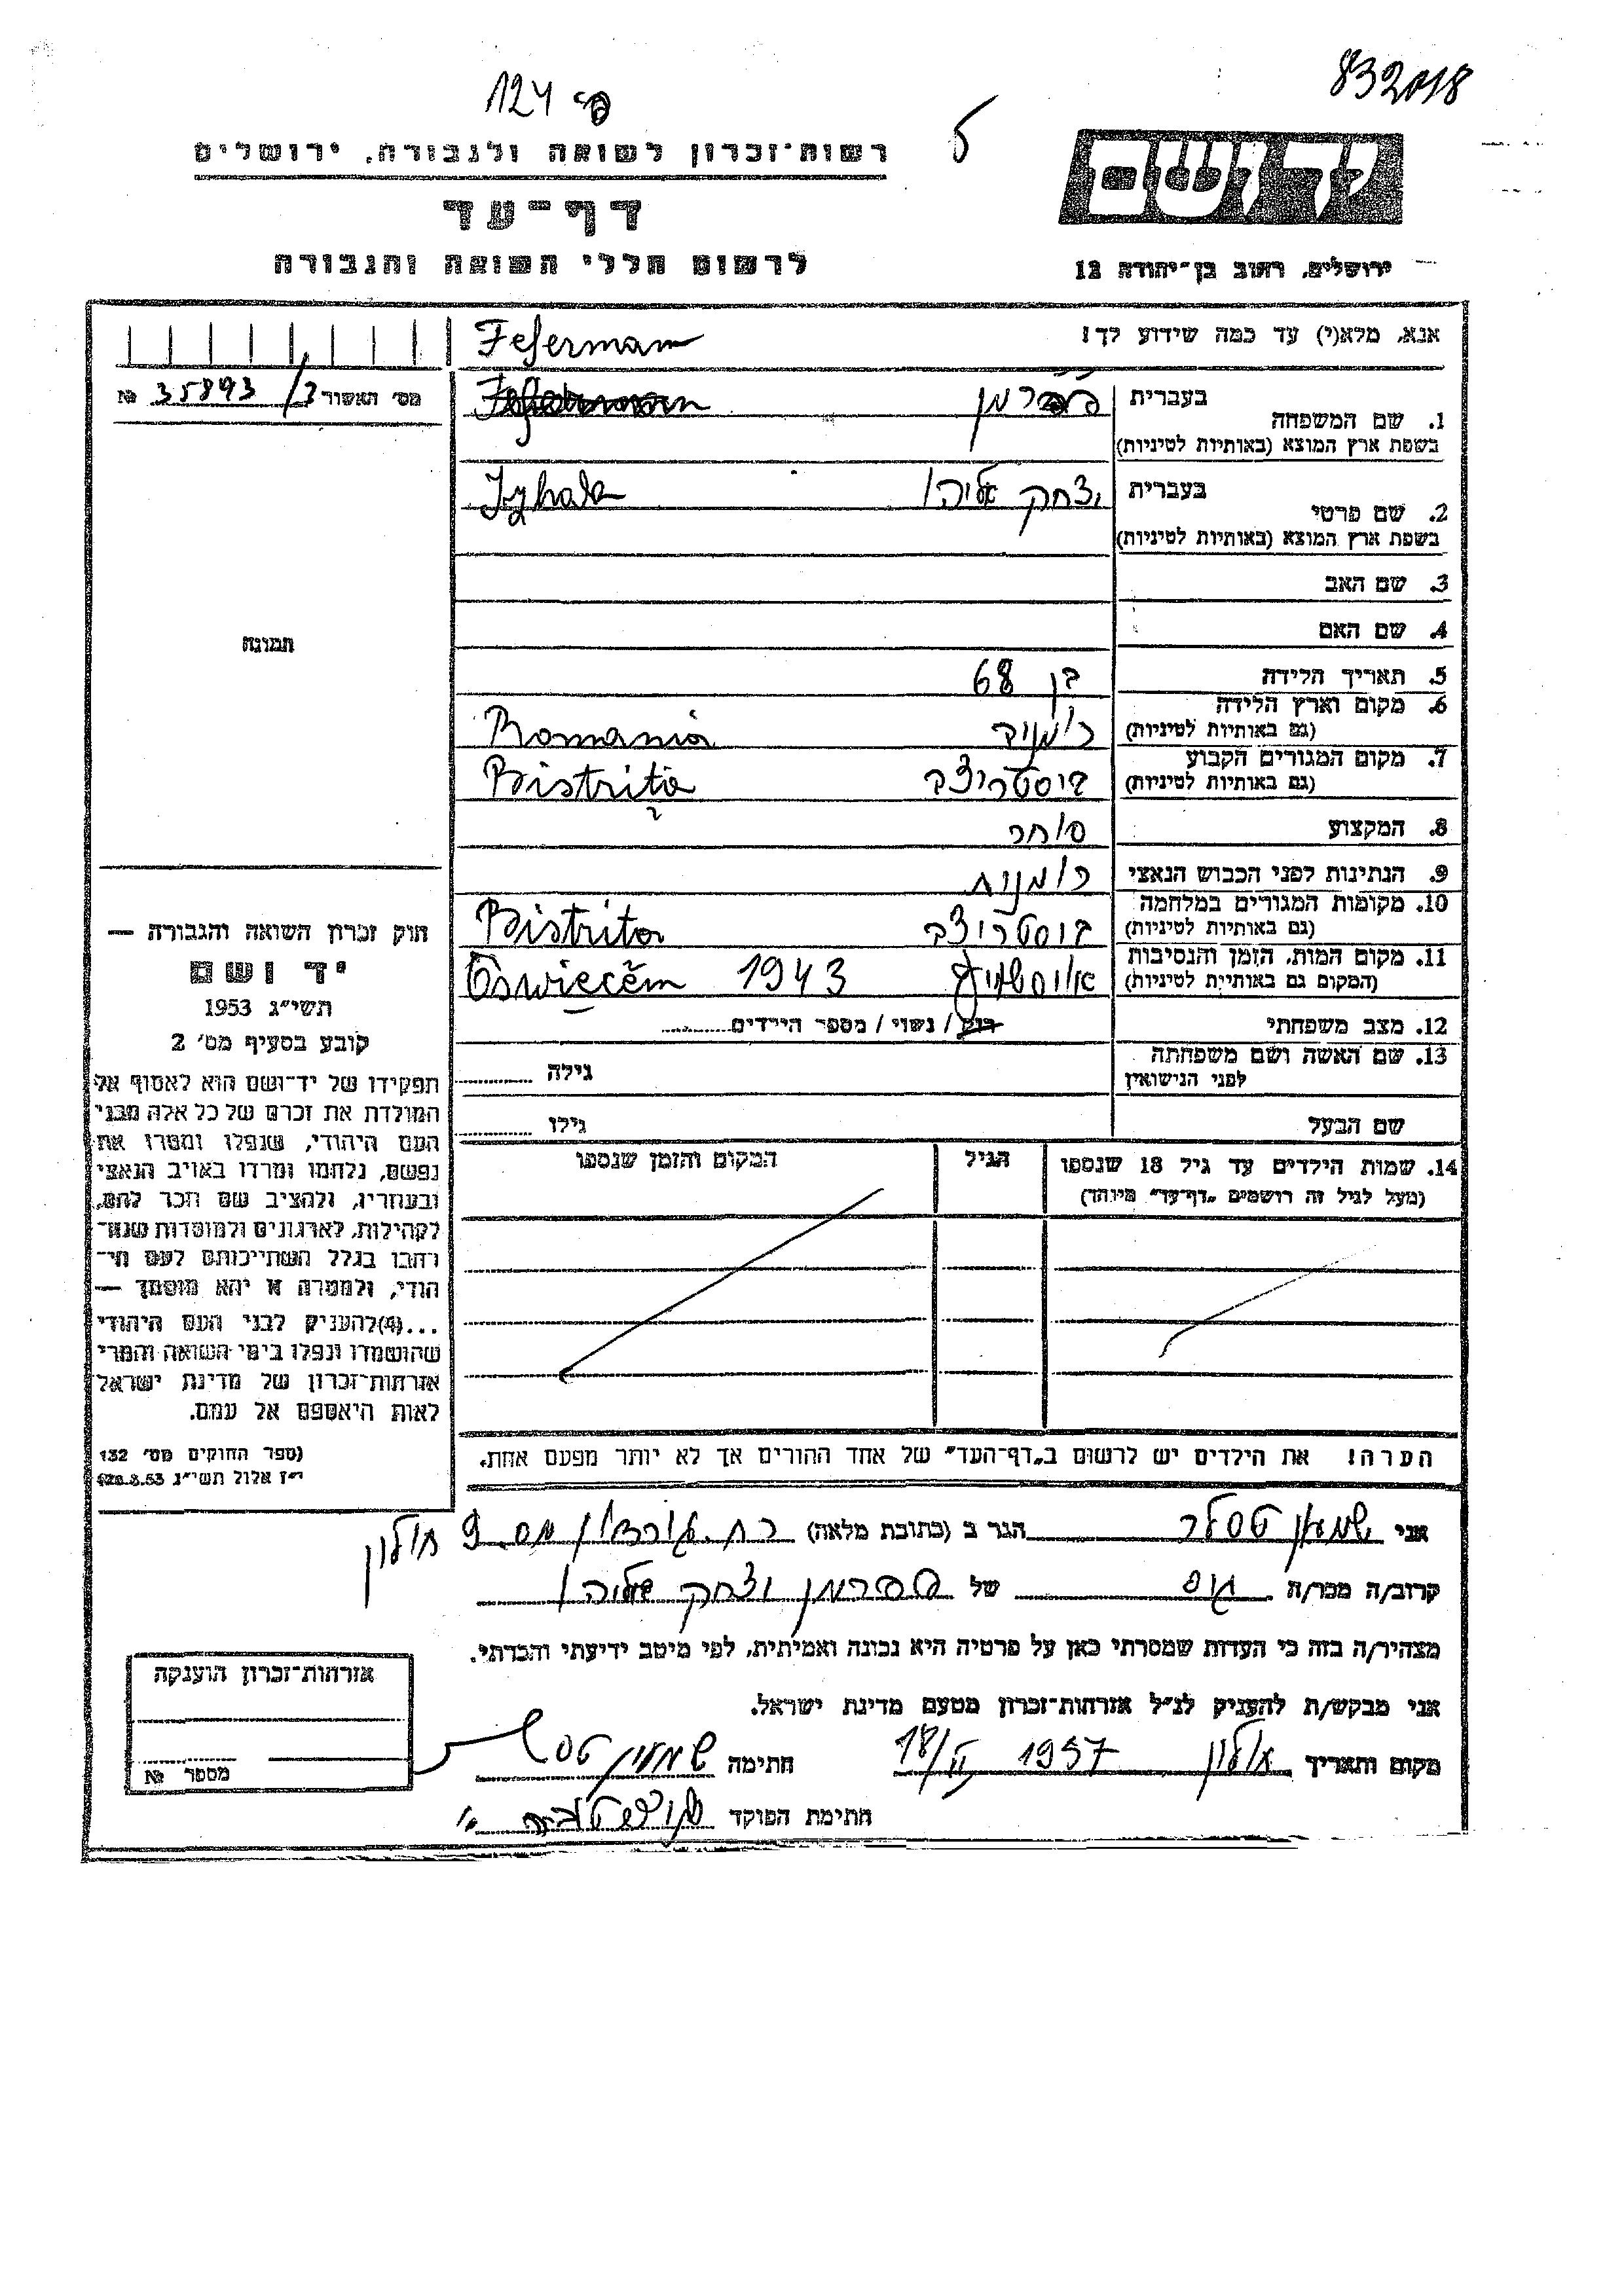 832018
124 פ
רשות־זכרון לשואה ולגבורה, ירושלים
ידושם
דף־עד
לרשום חללי השואה והגבורה
ירושלים, רחוב בן־יהודה 12
אנא, מלא(י) עד כמה שידוע לך!
Feferman
מס׳ האשור 35893/3 №
1. שם המשפחה
בעברית פפרמן
בשפת ארץ המוצא (באותיות לטיניות)
2. שם פרטי
בעברית יצחק אליהו
Izhak
בשפת ארץ המוצא (באותיות לטיניות)
3. שם האב
4. שם האם
5. תאריך הלידה בן 68
6. מקום וארץ הלידה
(גם באותיות לטיניות) רומניה Romania
7. מקום המגורים הקבוע
(גם באותיות לטיניות) ביסטריצה Bistriţa
8. המקצוע סוחר
9. הנתינות לפני הכבוש הנאצי רומנית
10. מקומות המגורים במלחמה
(גם באותיות לטיניות) ביסטריצה Bistrita
11. מקום המות, הזמן והנסיבות
(המקום גם באותיות לטיניות) אושויץ 1943 Oswiecěm
12. מצב משפחתי רווק / נשוי / מספר הילדים
13. שם האשה ושם משפחתה
לפני הנישואין
גילה
שם הבעל גילו
14. שמות הילדים עד גיל 18 שנספו
(מעל לגיל זה רושמים „דף־עד״ מיוחד)
הגיל
המקום והזמן שנספו
הערה! את הילדים יש לרשום ב„דף־העד״ של אחד ההורים אך לא יותר מפעם אחת.
תמונה
חוק זכרון השואה והגבורה —
יד ושם
תשי״ג 1953
קובע בסעיף מס׳ 2
תפקידו של יד־ושם הוא לאסוף אל
המולדת את זכרם של כל אלה מבני
העם היהודי, שנפלו ומסרו את
נפשם, נלחמו ומרדו באויב הנאצי
ובעוזריו, ולהציב שם וזכר להם,
לקהילות, לארגונים ולמוסדות שנח־
רבו בגלל השתייכותם לעם הי־
הודי, ולמטרה זו יהא מוסמך —
...(4)להעניק לבני העם היהודי
שהושמדו ונפלו בימי השואה והמרי
אזרחות־זכרון של מדינת ישראל
לאות היאספם אל עמם.
(ספר החוקים מס׳ 132
י״ז אלול תשי״ג 28.8.53)
אני שמעון טסלר הגר ב (כתובת מלאה) רח. מס. 9 חולון
קרוב/ה מכר/ה גיס של פפרמן יצחק אליהו
מצהיר/ה בזה כי העדות שמסרתי כאן על פרטיה היא נכונה ואמיתית, לפי מיטב ידיעתי והכרתי.
אני מבקש/ת להעניק לנ״ל אזרחות־זכרון מטעם מדינת ישראל.
מקום ותאריך חולון 18/II 1957 חתימה שמעון טסלר
חתימת הפוקד
אזרחות־זכרון הוענקה
מספר №